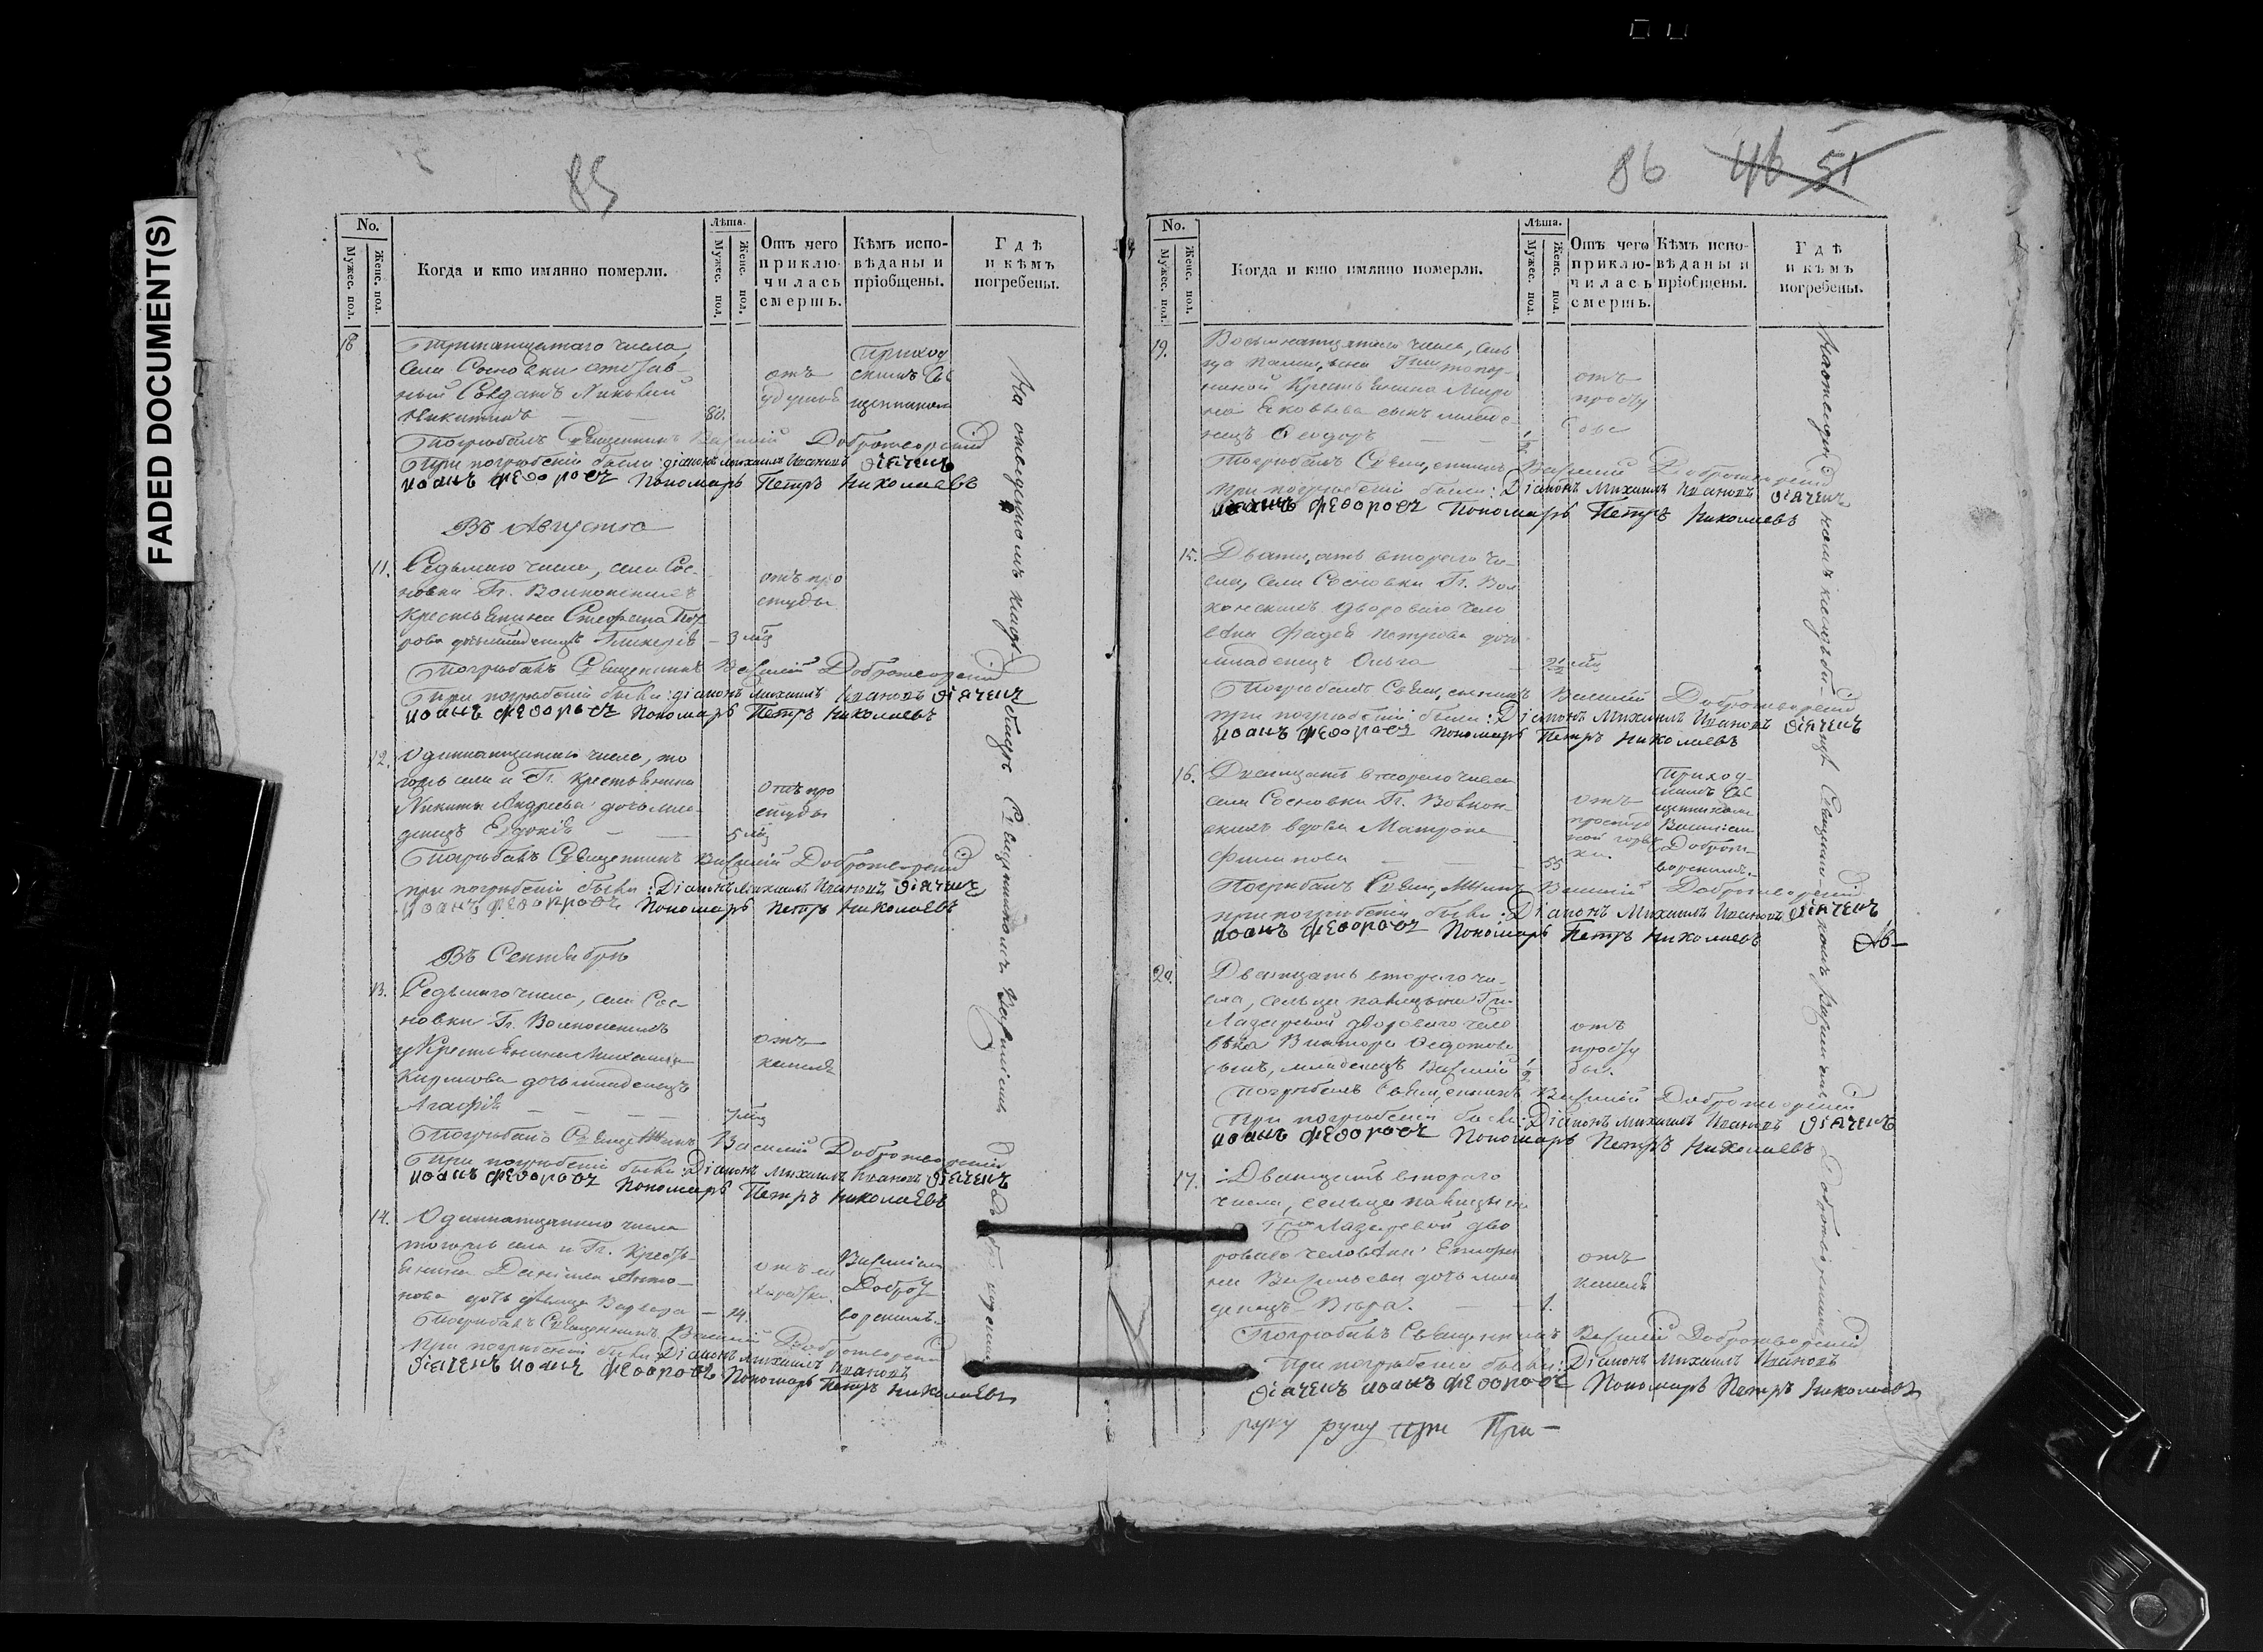 FADED DOCUMENT(S)
85
No.
Мужес. пол.
Женс. пол.
Когда и кто имянно померли.
Лѣта.
Мужес. пол.
Женс. пол.
Отъ чего
приклю-
чилась
смерть.
Кѣмъ испо-
вѣданы и
пріобщены.
Гдѣ
и кѣмъ
погребены.
Тринатцатаго числа
села Сосновки отстав-
ный Солдатъ
Никитинъ 80.
отъ
Приход
скимъ Св
щенникомъ
Погребалъ Священникъ Василій Добротворскій
При погребеніи были: діаконъ Михаилъ Ивановъ дьячекъ
Иоанъ Федоровъ Пономарь Петръ Николаевъ
Въ Августѣ
11. Седьмаго числа, села Сос-
новки Гг. Волконскихъ
крестьянина Стефана Пет
рова дочь младенецъ Гликерія 3 мѣс
отъ про
студы
Погребалъ Священникъ Василій Добротворскій
При погребеніи были: діаконъ Михаилъ Ивановъ дьячекъ
Иоанъ Федоровъ Пономарь Петръ Николаевъ
12. Одиннатцатаго числа, то
гожъ села и Гг. крестьянина
Никиты Андреева дочь мла-
денецъ Евдокія 5 мѣс
отъ про
студы
Погребалъ Священникъ Василій Добротворскій
при погребеніи были: Діаконъ Михаилъ Ивановъ дьячекъ
Иоанъ Федоровъ Пономарь Петръ Николаевъ
Въ Сентябрѣ
13. Седьмаго числа, села Сос-
новки Гг. Волконскихъ
крестьянина Михаила
Кирилова дочь младенецъ
Агафія 7 мѣс
отъ
кашля
Погребалъ Священникъ Василій Добротворскій
При погребеніи были: Діаконъ Михаилъ Ивановъ дьячекъ
Иоанъ Федоровъ Пономарь Петръ Николаевъ
14. Одиннатцатаго числа
тогожъ села и Гг. Кресть-
янина Даніила Анто-
нова дочь дѣвица Варвара 14.
отъ ли
хорадки.
Василіемъ
Доброт
ворскимъ.
Погребалъ Священникъ Василій Добротворскій
При погребеніи были: Діаконъ Михаилъ Ивановъ
дьячекъ Иоанъ Федоровъ Пономарь Петръ Николаевъ
На отведенномъ кладбищѣ Священникомъ Василіемъ
86 46 51
No.
Мужес. пол.
Женс. пол.
Когда и кто имянно померли.
Лѣта.
Мужес. пол.
Женс. пол.
Отъ чего
приклю-
чилась
смерть.
Кѣмъ испо-
вѣданы и
пріобщены.
Гдѣ
и кѣмъ
погребены.
19. Восьмнатцатаго числа, сель
ца
крестьянина Миро
на Яковлева сынъ младе-
нецъ Феодоръ 1/2
отъ
просту
Погребалъ Священникъ Василій Добротворскій
при погребеніи были: Діаконъ Михаилъ Ивановъ дьячекъ
Иоанъ Федоровъ Пономарь Петръ Николаевъ
15. Дватцать втораго чи-
сла, села Сосновки Гг. Вол
конскихъ двороваго чело
вѣка Фадея Петрова дочь
младенецъ Ольга 2 1/2 мѣс
Погребалъ Священникъ Василій Добротворскій
при погребеніи были: Діаконъ Михаилъ Ивановъ дьячекъ
Иоанъ Федоровъ Пономарь Петръ Николаевъ
16. Дватцать втораго числа
села Сосновки Гг. Волкон-
скихъ вдова Матрона
Филипова 55
отъ
простуд
ной горяч
ки.
Приход-
скимъ Свя
щенникомъ
Василіем
Доброт-
ворскимъ.
Погребалъ Священникъ Василій Добротворскій
при погребеніи были: Діаконъ Михаилъ Ивановъ дьячекъ
Иоанъ Федоровъ Пономарь Петръ Николаевъ
20. Дватцать втораго чи-
сла, сельца
Лазаревой двороваго чело
вѣка Виктора Федотова
сынъ, младенецъ Василій 1/2
отъ
просту
ды.
Погребалъ Священникъ Василій Добротворскій
При погребеніи были: Діаконъ Михаилъ Ивановъ дьячекъ
Иоанъ Федоровъ Пономарь Петръ Николаевъ
17. Дватцать втораго
числа, сельца
Гжи Лазаревой дво
роваго человѣка
Васильева дочь мла
денецъ Вѣра. 1.
отъ
кашля
Погребалъ Священникъ Василій Добротворскій
При погребеніи были: Діаконъ Михаилъ Ивановъ
дьячекъ Иоанъ Федоровъ Пономарь Петръ Николаевъ
руку руку при При-
На отведенномъ кладбищѣ Священникомъ Василіемъ Добротворскимъ